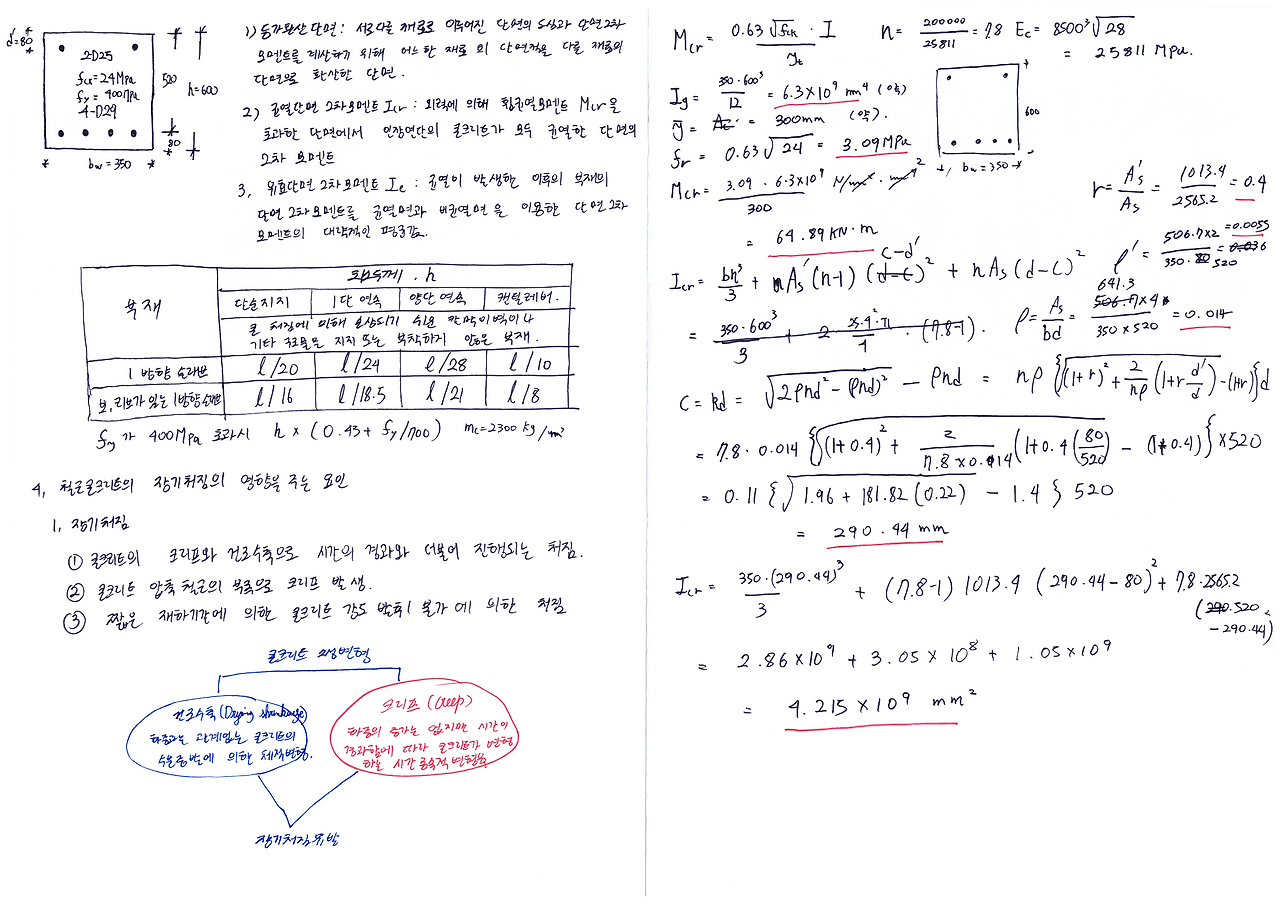 d'=80
2-D25
fck=24Mpa
fy=400Mpa
4-D29
520
h=600
80
bw=350
1) 등가환산단면: 서로다른 재료로 이루어진 단면의 도심과 단면2차
모멘트를 계산하기 위해 어느한 재료의 단면적을 다른 재료의
단면으로 환산한 단면.
2) 균열단면2차모멘트 Icr: 외력에 의해 휨균열모멘트 Mcr을
초과한 단면에서 인장연단의 콘크리트가 모두 균열한 단면의
2차 모멘트
3, 유효단면2차모멘트 Ie: 균열이 발생한 이후의 부재의
단면2차모멘트를 균열면과 비균열면을 이용한 단면2차
모멘트의 대략적인 평균값.
부재
최소두께. h
단순지지 1단 연속 양단 연속 캔틸레버.
큰 처짐에 의해 손상되기 쉬운 칸막이벽이나
기타 구조물을 지지 또는 부착하지 않은 부재.
1 방향 슬래브 l/20 l/24 l/28 l/10
보, 리브가 있는 1방향 슬래브 l/16 l/18.5 l/21 l/8
fy가 400Mpa 초과시 h×(0.43+fy/700) mc=2300kg/m³
4, 철근콘크리트의 장기처짐의 영향을 주는 요인
1, 장기처짐
① 콘크리트의 크리프와 건조수축으로 시간의 경과와 더불어 진행되는 처짐.
② 콘크리트 압축 철근의 부족으로 크리프 발생.
③ 짧은 재하기간에 의한 콘크리트 강도 발휘 불가에 의한 처짐
콘크리트 변형
건조수축(Drying shrinkage)
하중과는 관계없는 콘크리트의
수분증발에 의한 체적변형.
크리프 (Creep)
하중의 증가는 없지만 시간이
경과함에 따라 콘크리트가 변형
하는 시간 종속적 변형
장기처짐유발
Mcr= 0.63√fck · I / yt
n= 200000/25811 = 7.8 Ec= 8500 ³√28
= 25811 Mpa.
Ig= 350·600³/12 = 6.3×10⁹ mm⁴ (약)
ȳ= = 300mm (약).
fr= 0.63√24 = 3.09MPa
600
bw=350
Mcr= 3.09 · 6.3×10⁹ / 300 N/mm² · mm⁴
= 64.89 KN·m
r= A's/As = 1013.4/2565.2 = 0.4
ρ'= 506.7×2 / 350·520 = 0.0055
Icr= bh³/3 + nA's(n-1) (c-d')² + nAs(d-c)²
= 350·600³/3 + 2· 25.4²·π/4 · (7.8-1).
ρ= As/bd = 641.3×4 / 350×520 = 0.014
C= kd = √2ρnd²-(ρnd)² - ρnd = nρ{√(1+r)²+2/nρ(1+r d'/d) -(1+r)}d
= 7.8·0.014 {√(1+0.4)²+ 2/7.8×0.014 (1+0.4(80/520) - (1+0.4)}×520
= 0.11 {√1.96+181.82(0.22) - 1.4} 520
= 290.44 mm
Icr= 350·(290.44)³/3 + (7.8-1) 1013.4 (290.44-80)² + 7.8·2565.2
(520-290.44)²
= 2.86×10⁹ + 3.05×10⁸ + 1.05×10⁹
= 4.215×10⁹ mm²